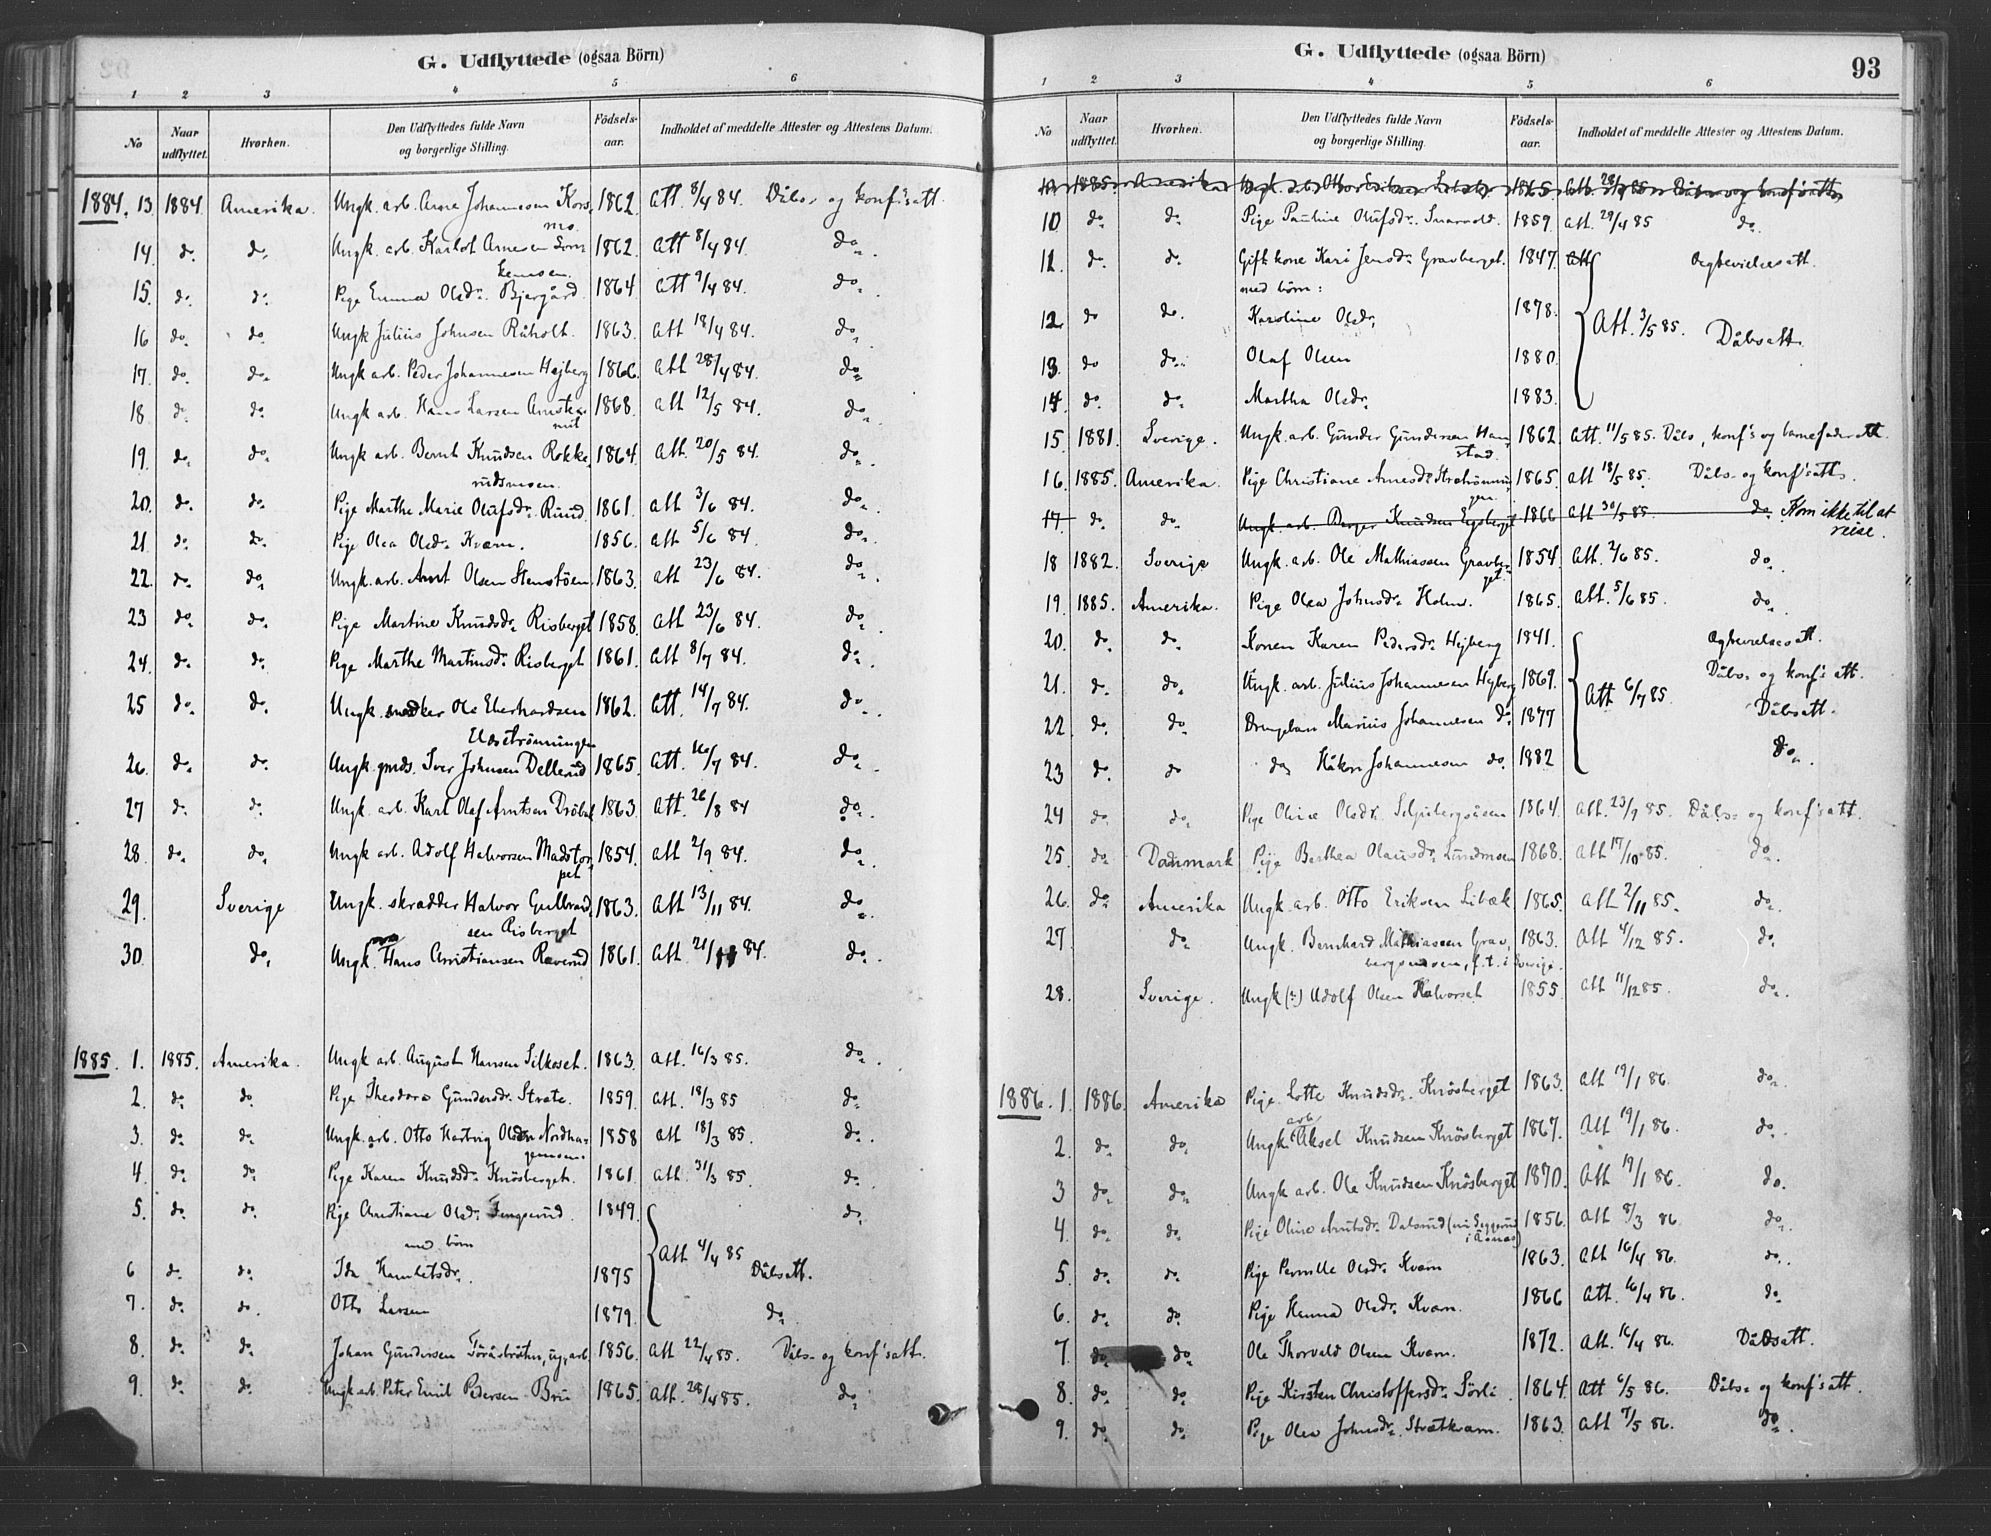 G. Udflyttede (ogsaa Börn)
1 2 3 4 5 6
No Naar udflyttet. Hvorhen. Den Udflyttedes fulde Navn og borgerlige Stilling. Födsels-aar. Indholdet af meddelte Attester og Attestens Datum.
1884. 13. 1884 Amerika. Ungk. arb. Arne Johannesen Kors,mo. 1862. Att. 8/4 84. Dåbs- og konf'satt.
14. do. do. Ungk. arb. Karlot Arnesen 1862. Att 8/4 84. do.
15. do. do. Pige Emma Olsdr. Bjergård. 1864 Att 9/4 84. do.
16 do. do. Ungk Julius Johnsen Råholt. 1863. Att 18/4 84. do.
17. do. do. Ungk arb. Peder Johannesen Hejberg 1866. Att 28/4 84. do.
18 do. do. Ungk arb. Hans Larsen 1868. Att 12/5 84. do.
19. do. do. Ungk arb. Bernt Knudsen Rokke,rudsmoen. 1864. Att. 20/5 84. do.
20. do. do. Pige Marthe Marie Olufsdr. Ruud. 1861. Att 3/6 84. do.
21. do. do. Pige Olea Olsdr. Kværn. 1856. Att 5/6 84. do.
22. do. do. Ungk. arb. Arnt Olsen Stenstöen. 1863. Att 23/6 84. do.
23 do. do. Pige Martine Knudsdr. Risberget 1858. Att 23/6 84. do.
24. do. do. Pige Marthe Martinsdr. Risberget 1861. Att 8/7 84. do.
25 do. do. Ungk. snedker Ole Eberhardsen 1862. Att. 14/7 84. do.
26. do. do. Ungk. gmds. Iver Johnsen Dellerud 1865. Att. 16/7 84. do.
27 do. do. Ungk. arb. Karl Olaf Arntsen Dröbak 1863. Att. 26/8 84 do.
28. do. do. Ungk arb. Adolf Halvorsen Madstorpet 1854. Att 2/9 84. do.
29. Sverige Ungk. skrædder Halvor Gulbrandsen Risberget 1863. Att 13/11 84. do.
30. do. Ungk. Hans ChristiansenRæverud 1861. Att. 21/11 84. do.
1885. 1. 1885. Amerika. Ungk arb. August Hansen Silkoset. 1863. Att. 16/3 85. do.
2. do. do. Pige Theodora Gundersdr. Stræte. 1859. Att. 18/3 85 do.
3. do. do. Ungk. arb. Otto Hartvig Olsen Nordha,gemoen. 1858 Att 18/3 85. do.
4. do. do. Pige Karen Knudsdr. Knösberget. 1861. Att. 31/3 85. do.
5. do. do. Pige Christiane Olsdr. 1849. do.
med börn
6 do. do. Ida Hamletsdr. 1875 Att 4/4 85 Dåbsatt.
7. do. do. Otto Larsen 1879. do.
8. do. do. Johan Gundersen Töråsbråten, ug. arb. 1856. Att 22/4 85. Dåbs- og konf'satt.
9. do. do. Ungk arb. Peter Emil Pedersen Bru 1865. Att. 28/4 85. do.
G. Udflyttede (ogsaa Börn) 93
1 2 3 4 5 6
No Naar udflyttet. Hvorhen. Den Udflyttedes fulde Navn og borgerlige Stilling. Födsels-aar. Indholdet af meddelte Attester og Attestens Datum.
10 1885. Amerika Ungk. arb. Otto Eriksen Libæk 1865. Att. 28/4 85 Dåbs- og konf'satt.
10 do. do. Pige Pauline Olufsdr. Snarvold. 1859. Att. 29/4 85 do.
11. do. do. Gift kone Kari Jensdr. Gravberget. 1847. Att Ægtevielsesatt.
med börn:
12 do do. Karoline Olsdr. 1878. Att. 3/5 85. Dåbsatt.
13. do do. Olaf Olsen 1880.
14. do. do. Martha Olsdr. 1883.
15. 1881. Sverige. Ungk. arb. Gunder Gundersen Han,stad. 1862. Att. 11/5 85. Dåbs, konf's og barnefader att.
16. 1885. Amerika. Pige Christiane Arnesdr. 1865. Att 18/5 85. Dåbs- og konf'satt.
17. do. do. Ungk. arb. Berger Knudsen 1866 Att 30/5 85. do. Kom ikke til at reise.
18 1882. Sverige Ungk. arb. Ole Mathiassen Gravber-get. 1854. Att. 2/6 85. do.
19. 1885. Amerika. Pige Olea Johnsdr. Holm. 1865. Att. 5/6 85. do.
20. do. do. Konen Karen Pedersdr. Hejberg 1841. Ægtevielsesatt.
21. do. do. Ungk. arb. Julius Johannesen Hejberg 1869. Att 6/7 85. Dåbs- og konf's att.
22. do. do. Drengebarn Marius Johannesen do. 1877 Dåbsatt.
23 do. do do. Håkon Johannesen do. 1882 do.
24 do. do. Pige Oline Olsdr. 1864. Att. 23/9 85. Dåbs- og konf'satt.
25. do. Danmark Pige Berthea Olausdr. Lundmoen 1868. Att 17/10 85. do.
26. do. Amerika Ungk. arb. Otto Eriksen Libæk 1865. Att 2/11 85. do.
27. do. Ungk. Bernhard Mathiassen Grav,bergsmoen, f.t. i Sverige. 1863. Att 4/12 85. do.
28. Sverige. Ungk (?) Adolf Olsen Halvorset 1855. Att 11/12 85. do.
1886. 1. 1886. Amerika Pige Lotte Knudsdr. Knösberget 1863. Att 19/1 86. do.
2. do. do. Ungk. arb. Aksel Knudsen Knösberget 1867. Att 19/1 86. do.
3 do. do. Ungk arb. Ole Knudsen Knösberget 1870. Att 19/1 86. do.
4. do. do. Pige Oline Arntsdr. Dalsrud i Åsnes) 1856. Att 8/3 86. do.
5. do. do. Pige Pernille Olsdr. Kværn 1863. Att 16/4 86. do.
6. do. do. Pige Hanna Olsdr. Kværn. 1866 Att. 16/4 86. do.
7. do. do. Ole Thorvald Olsen Kværn. 1872. Att. 16/4 86. Dåbsatt.
8. do. do. Pige Kirsten Christoffersdr. Sörli. 1864. Att 6/5 86. Dåbs- og konf'satt.
9. do. do. Pige Olea Johnsdr. Strætkværn. 1863. Att 7/5 86. do.